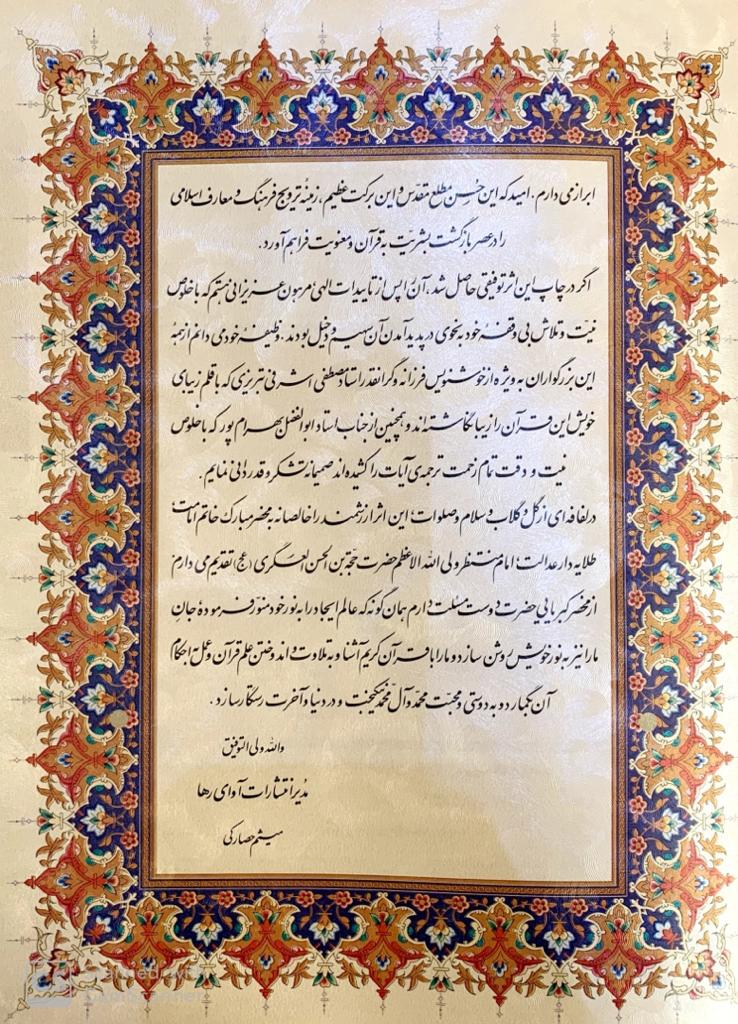 ابراز می دارم. امید که این حُسن مطلع مقدّس و این برکت عظیم، زمینهٔ ترویج فرهنگ و معارف اسلامی
را در عصر بازگشت بشریّت به قرآن و معنویت فراهم آورد.
اگر در چاپ این اثر توفیقی حاصل شد، آن را پس از تاییدات الهی مرهون عزیزانی هستم که با خلوص
نیّت و تلاش بی وقفهٔ خود به نحوی در پدید آمدن آن سهیم و دخیل بودند. وظیفهٔ خود می دانم از همهٔ
این بزرگواران به ویژه از خوشنویس فرزانه و گرانقدر استاد مصطفی اشرفی تبریزی که با قلم زیبای
خویش این قرآن را زیبا نگاشته اند و همچنین از جناب استاد ابوالفضل بهرام پور که با خلوص
نیت و دقت تمام زحمت ترجمه ی آیات را کشیده اند صمیمانه تشکر و قدردانی نمایم.
در لفافه ای از گل و گلاب و سلام و صلوات؛ این اثر ارزشمند را خالصانه به محضر مبارک خاتم امامت؛
طلایه دار عدالت؛ امام منتظر ولی الله الاعظم حضرت حجّة بن الحسن العسکری (عج) تقدیم می دارم.
از محضر کبریایی حضرت دوست مسئلت دارم همان گونه که عالم ایجاد را به نور خود منوّر فرموده جانِ
ما را نیز به نور خویش روشن سازد و ما را با قرآن کریم آشنا و به تلاوت و اندوختن علم قرآن و عمل به احکام
آن بگمارد و به دوستی و محبّت محمّد و آل محمّد نیکبخت و در دنیا و آخرت رستگار سازد.
والله ولی التوفیق
مُدیر انتشارات آوای رها
میثم حصارکی